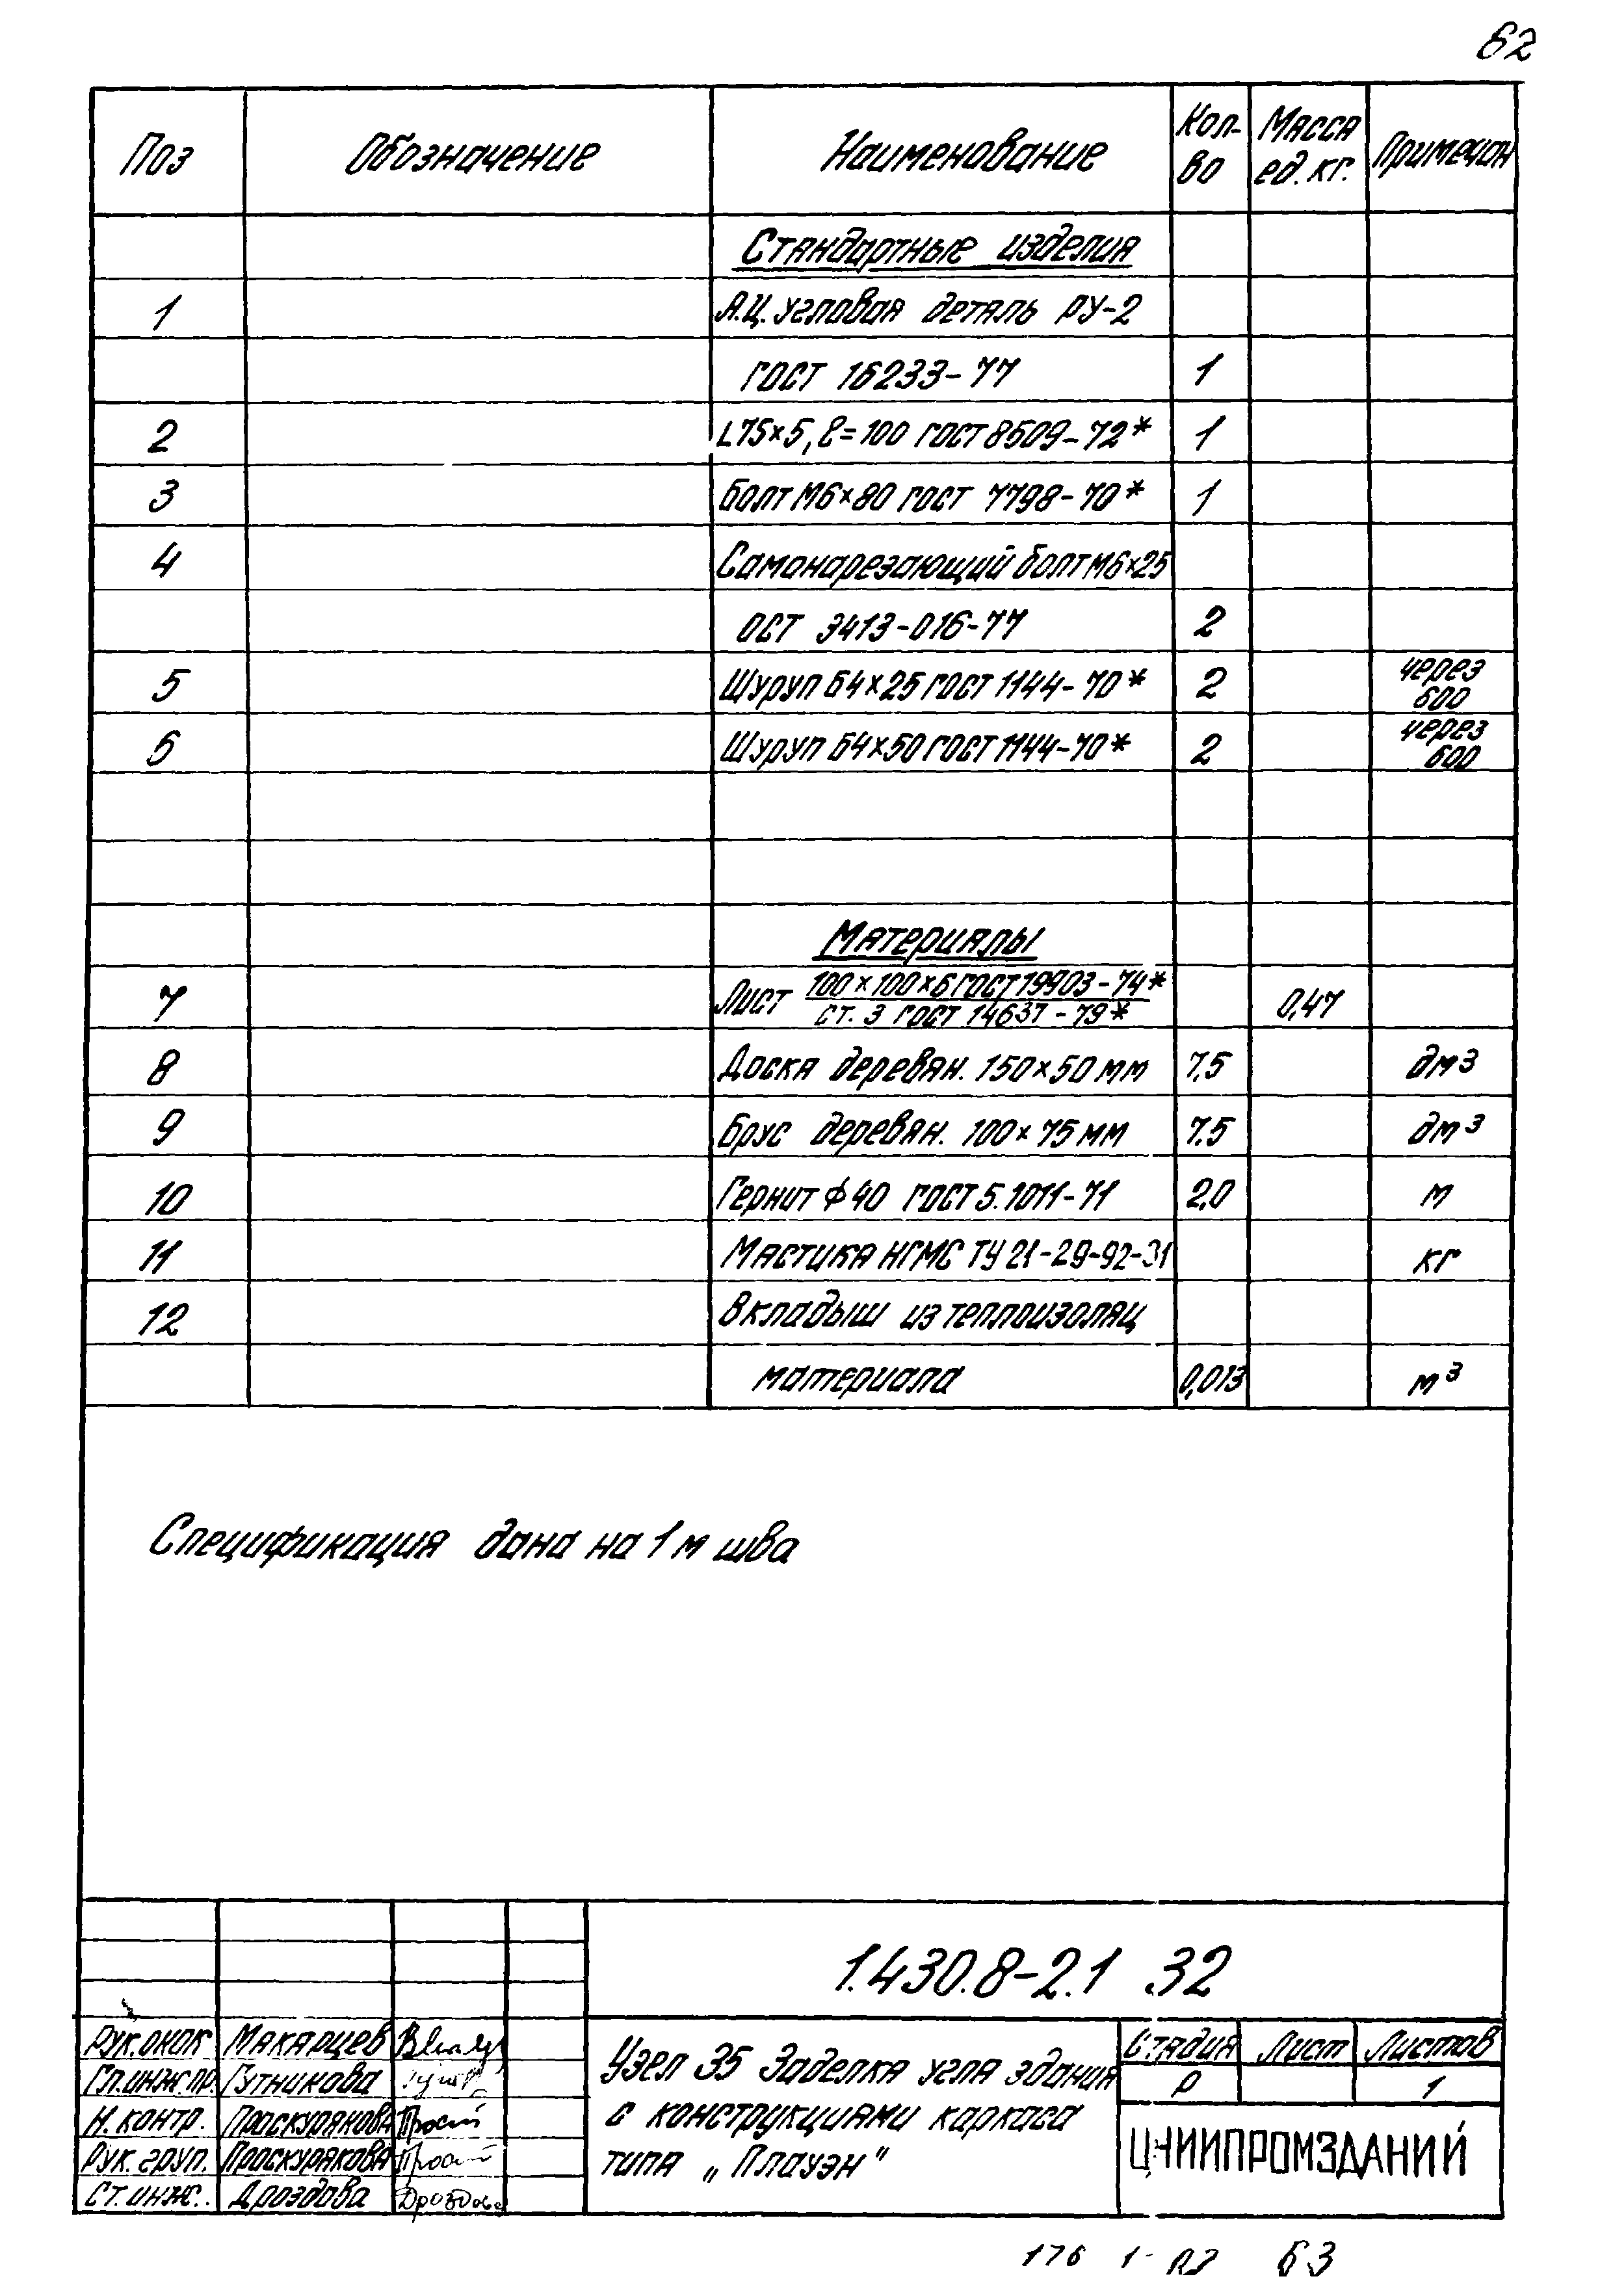 62
Поз Обозначение Наименование Кол-во Масса ед. кг. Примечан
Стандартные изделия
1 А.Ц. угловая деталь РУ-2
ГОСТ 16233-77 1
2 L75×5, ℓ=100 ГОСТ 8509-72* 1
3 Болт М6×80 ГОСТ 7798-70* 1
4 Самонарезающий болт М6×25
ОСТ 3413-016-77 2
5 Шуруп Б4×25 ГОСТ 1144-70* 2 через 600
6 Шуруп Б4×50 ГОСТ 1144-70* 2 через 600
Материалы
7 Лист 100×100×6 ГОСТ 19903-74* 0,47
Ст. 3 ГОСТ 14637-79*
8 Доска деревян. 150×50 мм 7,5 дм³
9 Брус деревян. 100×75 мм 7,5 дм³
10 Гернит ф 40 ГОСТ 5.1011-71 2,0 м
11 Мастика НГМС ТУ 21-29-92-31 кг
12 Вкладыш из теплоизоляц
материала 0,013 м³
Спецификация дана на 1 м шва
1.430.8-2.1 .32
Рук. Макарцев
Гл.инж.пр. Гутникова
Н. контр. Проскурякова
Рук. груп. Проскурякова
Ст. инж. Дроздова Дроздова
Узел 35 Заделка угла здания
с конструкциями каркаса
типа „Плауэн"
Стадия Лист Листов
Р 1
ЦНИИПРОМЗДАНИЙ
63